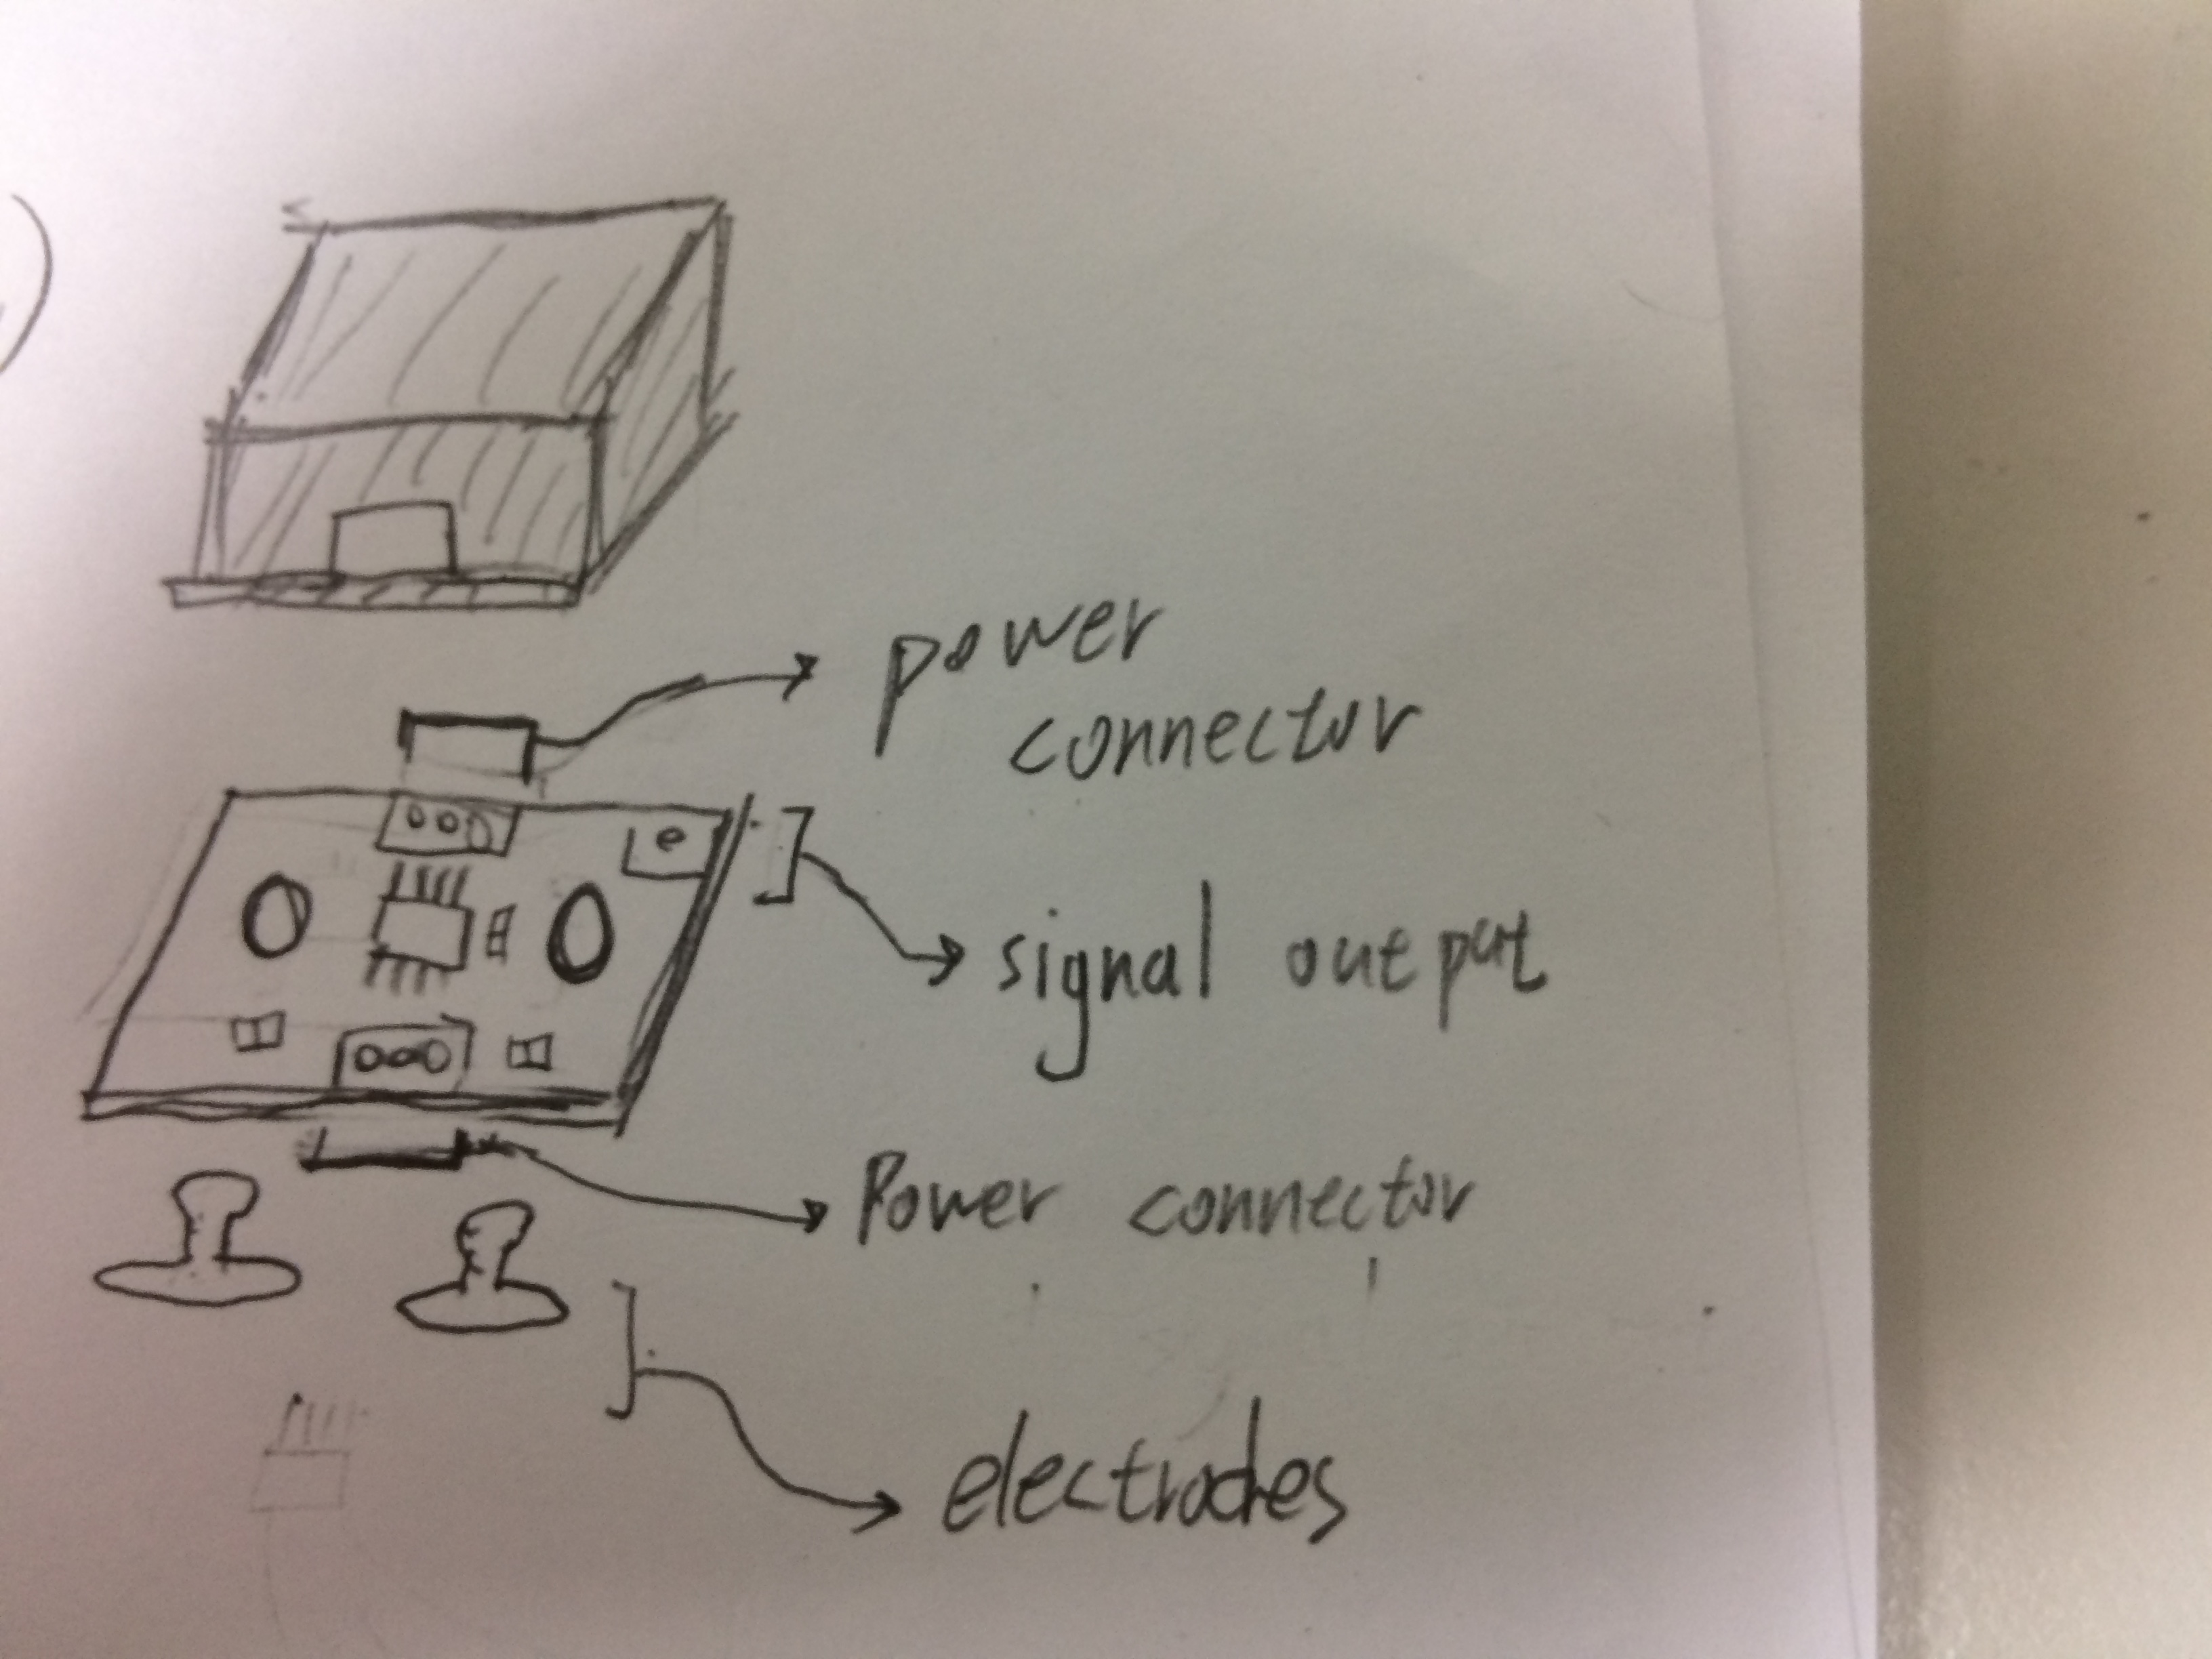 power
connector
signal output
Power connector
electrodes